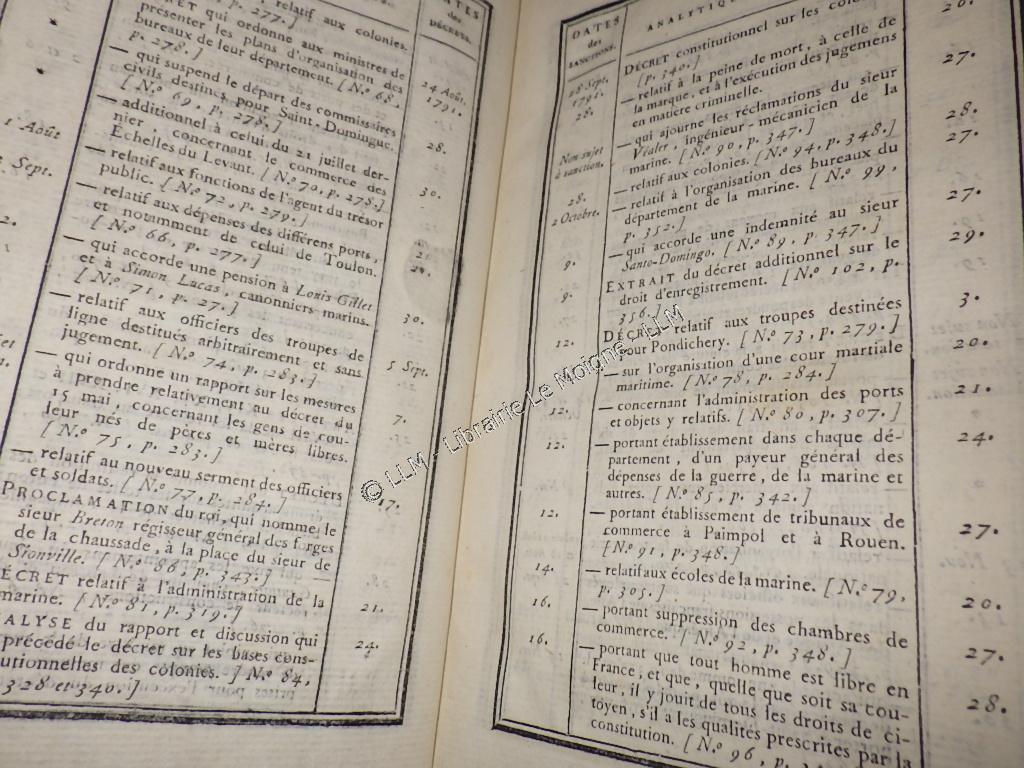 1 Août
Sept.
2.
DATES
des
DÉCRETS.
relatif aux colonies.
p. 277.]
qui ordonne aux ministres de
présenter les plans d'organisation des
bureaux de leur département. [N.º 68,
p. 278.]
24 Août.
1791.
— qui suspend le départ des commissaires
civils destinés pour Saint-Domingue.
[N.º 69, p. 278.]
28.
— additionnel à celui du 21 juillet der-
nier, concernant le commerce des
Échelles du Levant. [N.º 70, p. 278.]
30.
— relatif aux fonctions de l'agent du trésor
public. [N.º 72, p. 279.]
— relatif aux dépenses des différens ports,
et notamment de celui de Toulon.
[N.º 66, p. 277.]
21
— qui accorde une pension à Louis Gillet
et à Simon Lucas, canonniers marins.
[N.º 71, p. 27.]
30.
— relatif aux officiers des troupes de
ligne destitués arbitrairement et sans
jugement. [N.º 74, p. 283.]
5 Sept.
— qui ordonne un rapport sur les mesures
à prendre relativement au décret du
15 mai, concernant les gens de cou-
leur nés de pères et mères libres.
[N.º 75, p. 283.]
7.
— relatif au nouveau serment des officiers
et soldats. [N.º 77, p. 284.]
17.
PROCLAMATION du roi, qui nomme le
sieur Breton régisseur général des forges
de la chaussade, à la place du sieur de
Sionville. [N.º 86, p. 343.]
DÉCRET relatif à l'administration de la
marine. [N.º 81, p. 319.]
21.
ANALYSE du rapport et discussion qui
précédé le décret sur les bases cons-
tutionnelles des colonies. ] N.º 84,
328 et 340.]
24.
DATES
des
SANCTIONS.
ANALYTIQUE
28 Sept.
1791.
DÉCRET constitutionnel sur les colo
[p. 340.]
28.
— relatif à la peine de mort, à celle de
la marque, et à l'exécution des jugemens
en matière criminelle.
27.
Non sujet
à sanction.
— qui ajourne les réclamations du sieur
Véaler, ingénieur-mécanicien de la
marine. [N.º 90, p. 347.]
28.
28.
— relatif aux colonies. [N.º 94, p. 348.]
27.
2 Octobre.
— relatif à l'organisation des bureaux du
département de la marine. [N.º 99,
p. 352.]
27.
9.
— qui accorde une indemnité au sieur
Santo-Domingo. [N.º 89, p. 347.]
29.
9.
EXTRAIT du décret additionnel sur le
droit d'enregistrement. [N.º 102, p.
356.]
12.
DÉCRET relatif aux troupes destinées
pour Pondichery. [N.º 73, p. 279.]
3.
— sur l'organisation d'une cour martiale
maritime. [N.º 78, p. 284.]
20.
12.
— concernant l'administration des ports
et objets y relatifs. [N.º 80, p. 307.]
21.
12.
— portant établissement dans chaque dé-
partement, d'un payeur général des
dépenses de la guerre, de la marine et
autres. [N.º 85, p. 342.]
24.
12.
— portant établissement de tribunaux de
commerce à Paimpol et à Rouen.
[N.º 91, p. 348.]
27.
14.
— relatif aux écoles de la marine. [N.º 79,
p. 305.]
20.
16.
— portant suppression des chambres de
commerce. [N.º 92, p. 348.]
27.
16.
— portant que tout homme est libre en
France, et que, quelle que soit sa cou-
leur, il y jouit de tous les droits de ci-
toyen, s'il a les qualités prescrites par la
constitution. [N.º 96, p.
28.
© LLM - Librairie Le Moigne - LLM